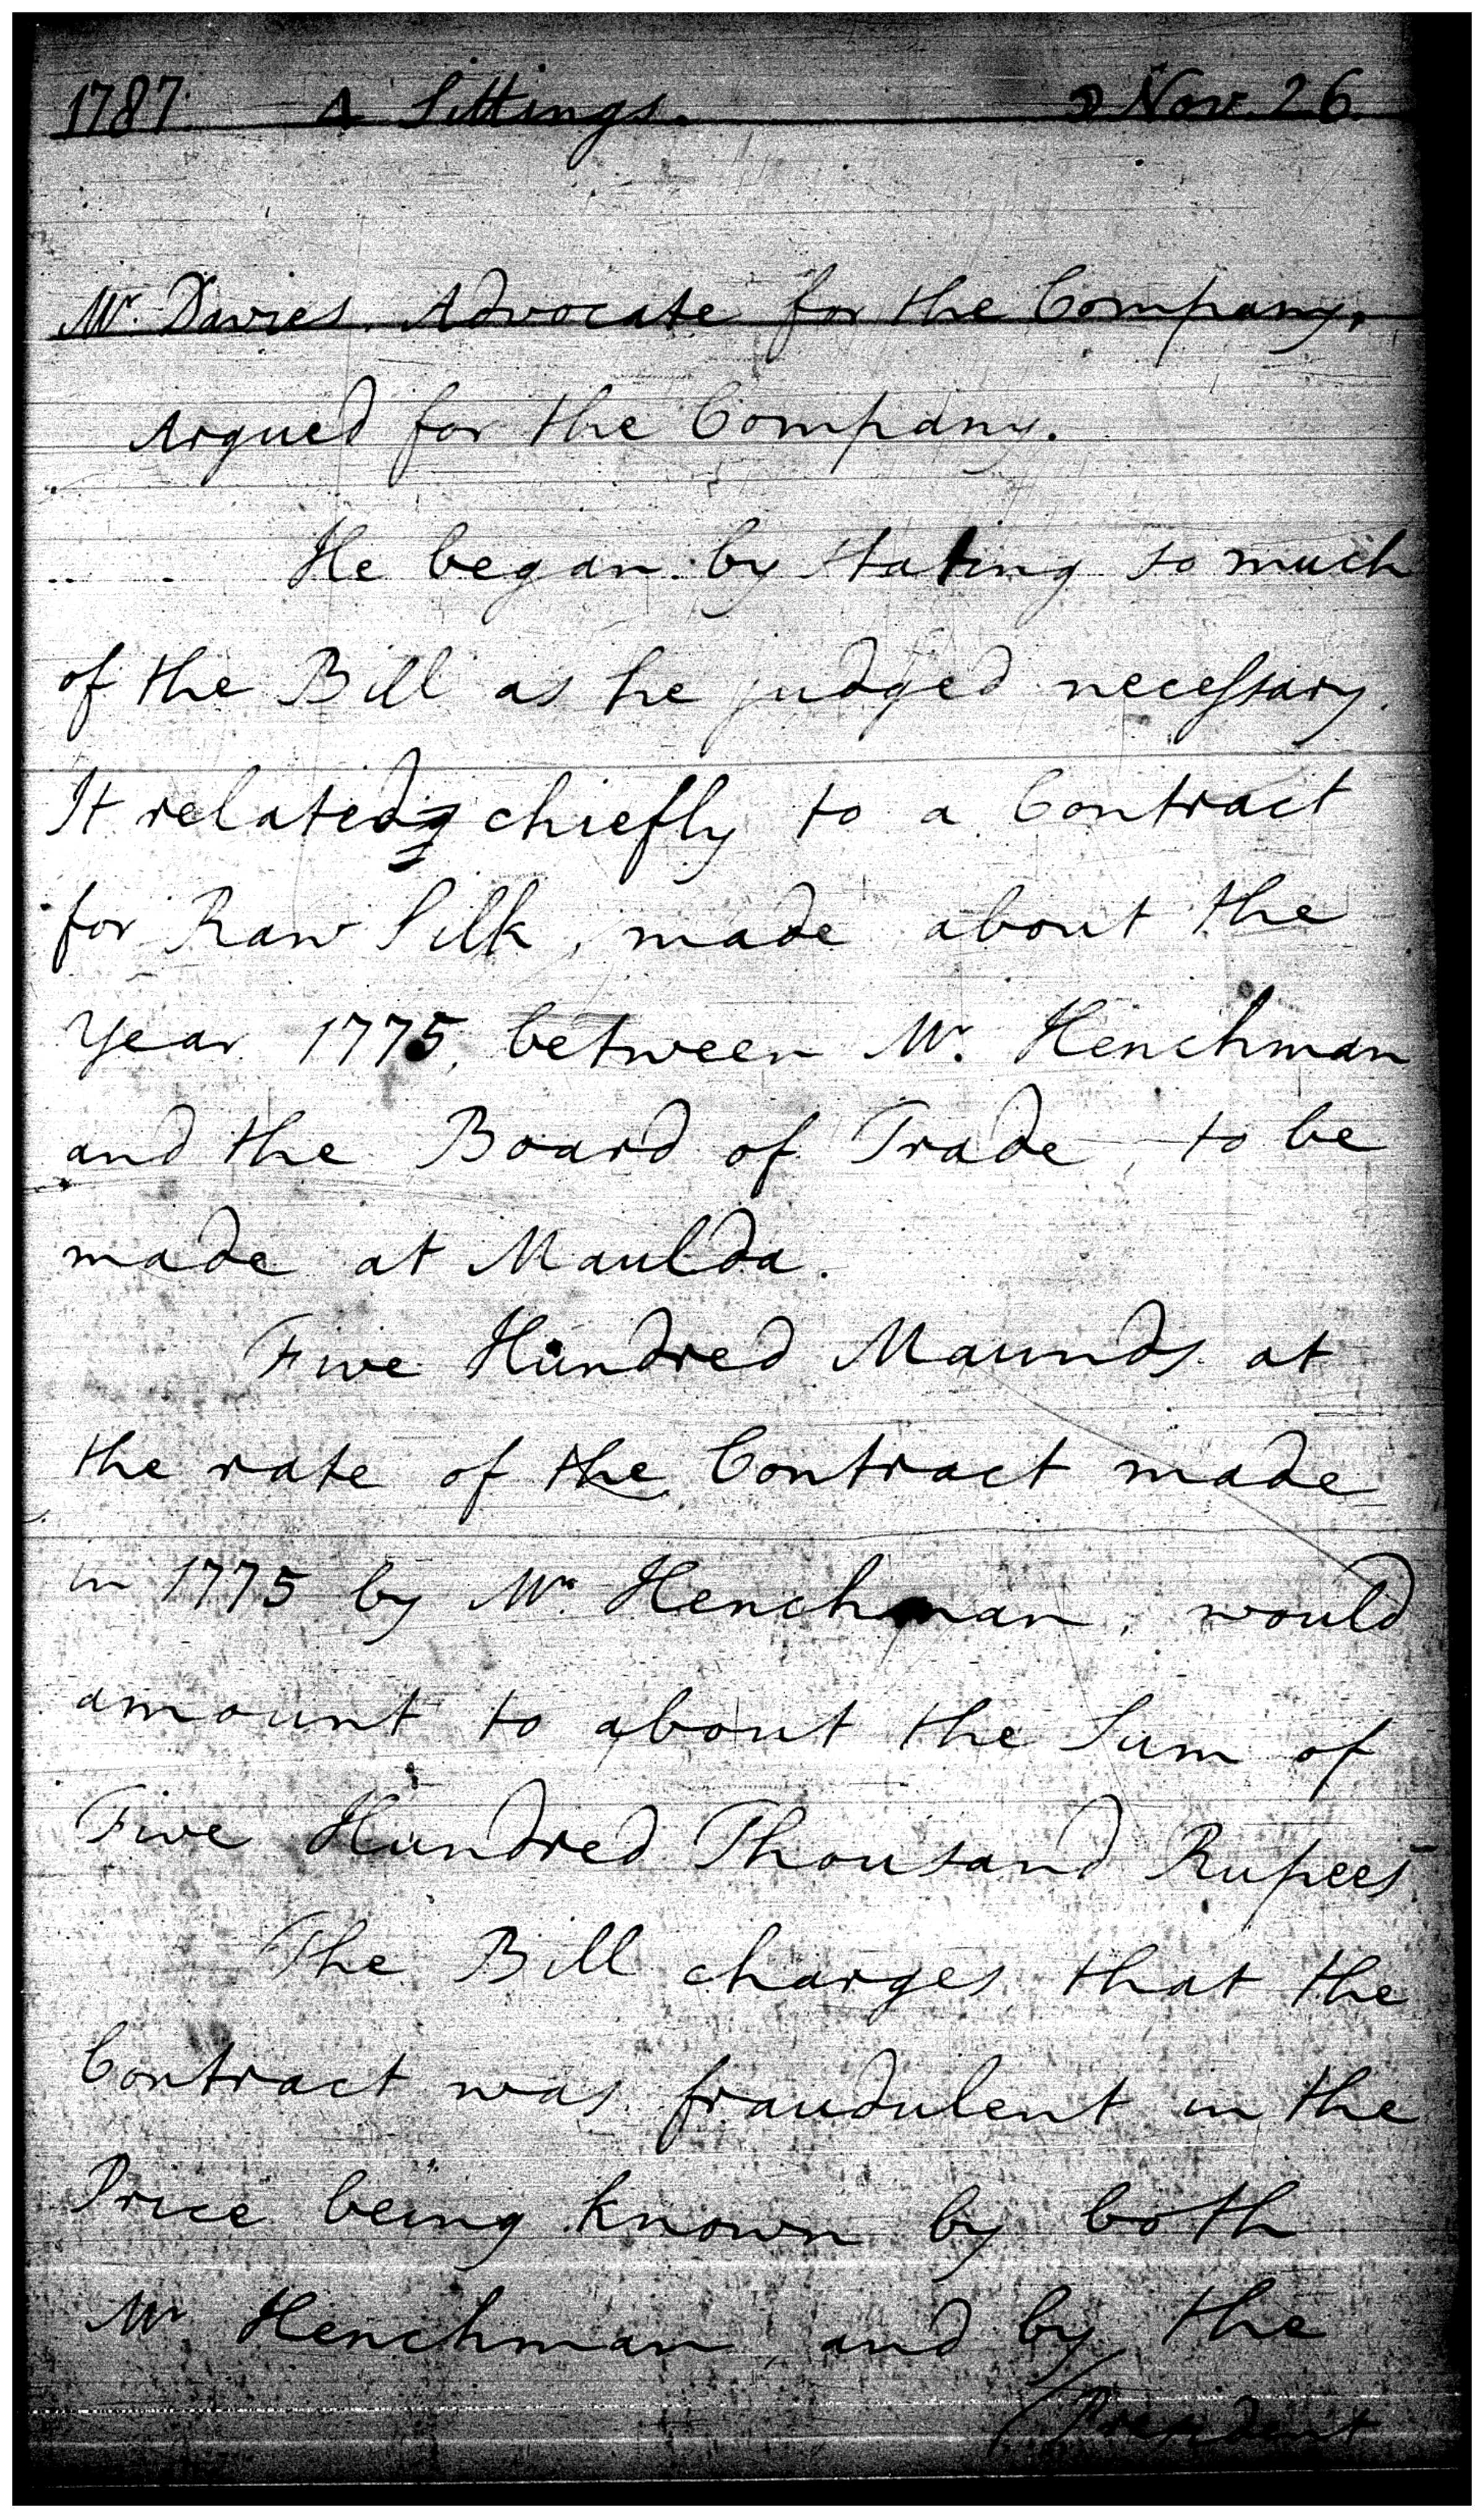 1787. 4 Sittings. ☽ Nov. 26.
Mr. Davies. Advocate for the Company,
Argued for the Company.
He began by stating so much
of the Bill as he judged necessary.
It related chiefly to a Contract
for Raw Silk, made about the
Year 1775, between Mr. Henchman
and the Board of Trade, to be
made at Maulda.
Five Hundred Maunds at
the rate of the Contract made
in 1775 by Mr. Henchman, would
amount to about the Sum of
Five Hundred Thousand Rupees
The Bill charges that the
Contract was fraudulent in the
Price being known by both
Mr Henchman, and by the
/President